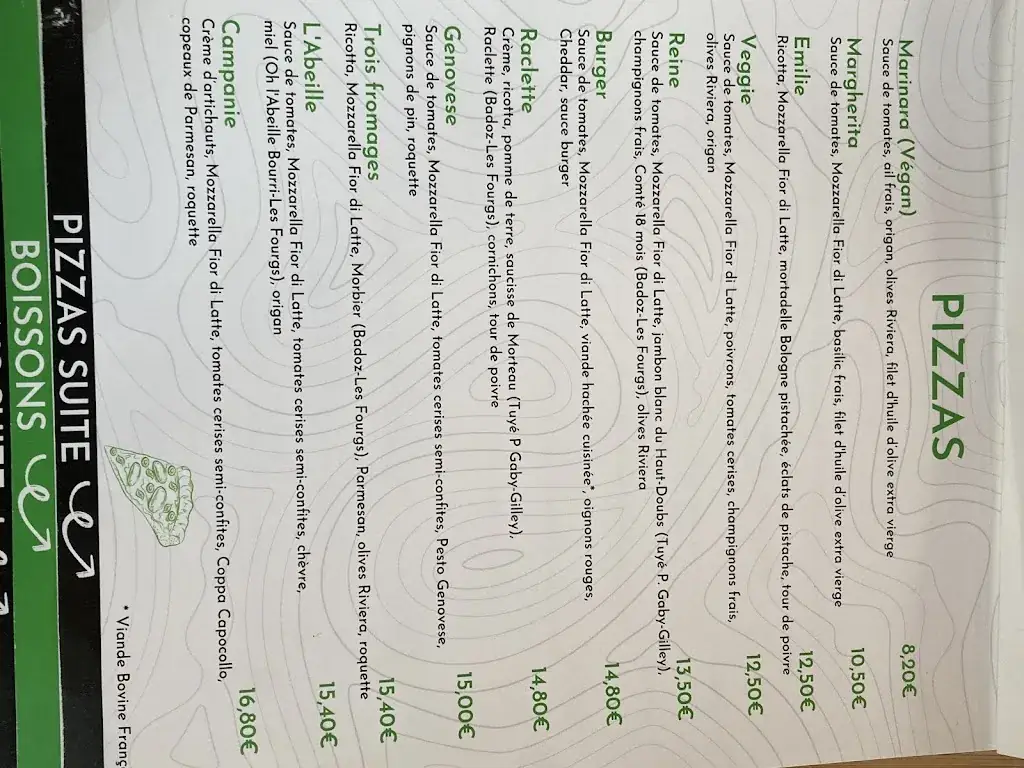 PIZZAS
Marinara (Végan) 8,20€
Sauce de tomates, ail frais, origan, olives Riviera, filet d'huile d'olive extra vierge
Margherita 10,50€
Sauce de tomates, Mozzarella Fior di Latte, basilic frais, filet d'huile d'olive extra vierge
Emilie 12,50€
Ricotta, Mozzarella Fior di Latte, mortadelle Bologne pistachée, éclats de pistache, tour de poivre
Veggie 12,50€
Sauce de tomates, Mozzarella Fior di Latte, poivrons, tomates cerises, champignons frais,
olives Riviera, origan
Reine 13,50€
Sauce de tomates, Mozzarella Fior di Latte, jambon blanc du Haut-Doubs (Tuyé P. Gaby-Gilley),
champignons frais, Comté 18 mois (Badoz-Les Fourgs), olives Riviera
Burger 14,80€
Sauce de tomates, Mozzarella Fior di Latte, viande hachée cuisinée*, oignons rouges,
Cheddar, sauce burger
Raclette 14,80€
Crème, ricotta, pomme de terre, saucisse de Morteau (Tuyé P Gaby-Gilley),
Raclette (Badoz-Les Fourgs), cornichons, tour de poivre
Genovese 15,00€
Sauce de tomates, Mozzarella Fior di Latte, tomates cerises semi-confites, Pesto Genovese,
pignons de pin, roquette
Trois fromages 15,40€
Ricotta, Mozzarella Fior di Latte, Morbier (Badoz-Les Fourgs), Parmesan, olives Riviera, roquette
L'Abeille 15,40€
Sauce de tomates, Mozzarella Fior di Latte, tomates cerises semi-confites, chèvre,
miel (Oh l'Abeille Bourri-Les Fourgs), origan
Campanie 16,80€
Crème d'artichauts, Mozzarella Fior di Latte, tomates cerises semi-confites, Coppa Capocollo,
copeaux de Parmesan, roquette
* Viande Bovine Franç
PIZZAS SUITE
BOISSONS